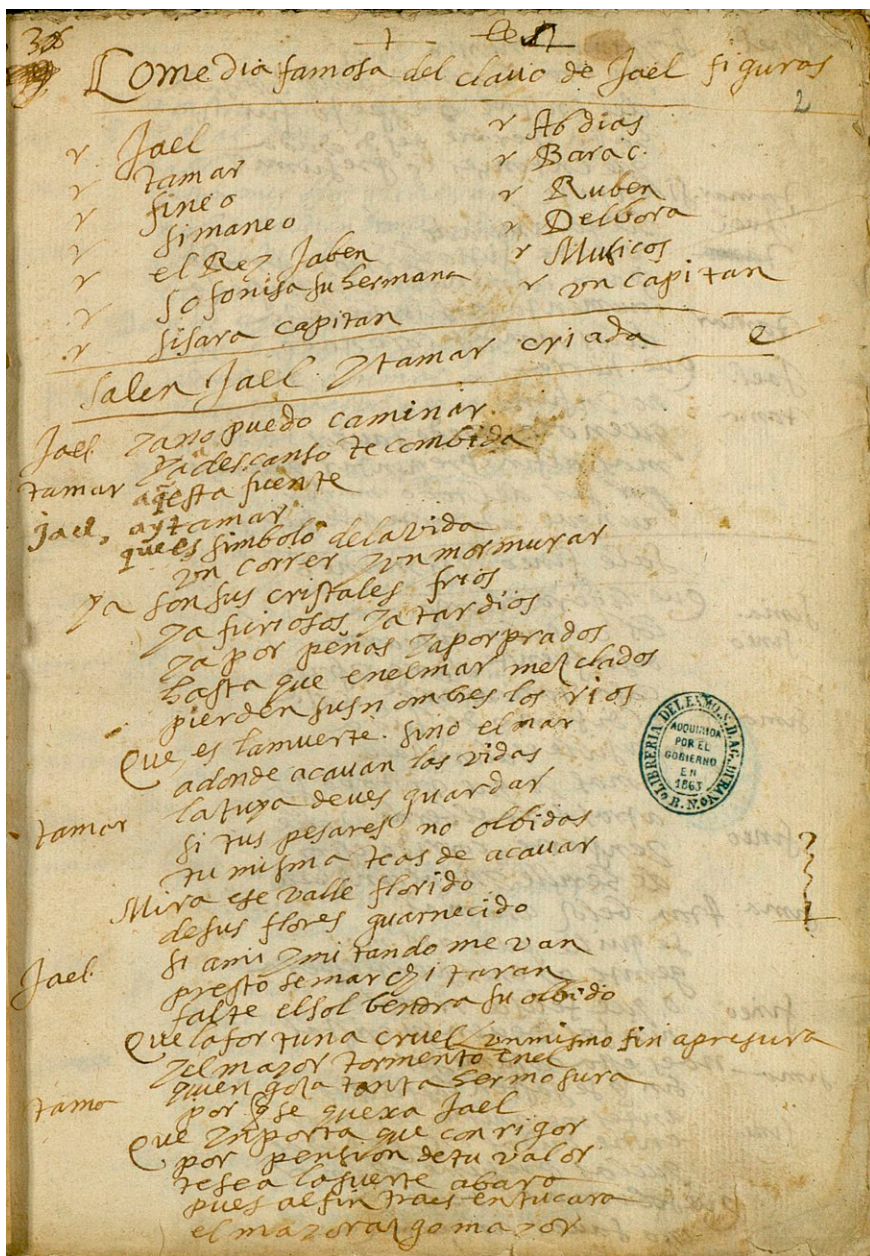 36
Comedia famosa del clauo de Jael figuras
2
r Jael
r tamar
r fineo
r simaneo
r el Rey Jaben
r Sofonisa su hermana
r sisara capitan
r Abdias
r Barac.
r Ruben
r Delbora
r Musicos
r vn capitan
Salen Jael y tamar criada
Jael yano puedo caminar
tamar ya descanso te combida
aqesta fuente
Jael, ay tamar
que es simbolo dela vida
vn correr y vn mormurar
ya son sus cristales frios
ya furiosos ya tardios
ya por peñas ya por prados
hasta que enel mar mezclados
pierden sus nombres los rios
Que es la muerte. sino el mar
adonde acauan las vidas
tamar la tuya deues guardar
si tus pesares no olbidas
tu misma teas de acauar
Mira ese valle florido
desus flores guarnecido
Jael si ami ymitando me van
presto se marchitaran
falte el sol bendra su olbido
Que la fortuna cruel vn mismo fin apresura
y el mayor tormento enel
tamo quien goza tanta hermosura
por q se quexa Jael
Que ynporta que con rigor
por pension de tu valor
te sea la suerte abara
pues al fin traes en tu cara
el mayorazgo mayor
LIBRERIA DEL EXMO. S. D. AG. DURAN
ADQUIRIDA
POR EL
GOBIERNO
EN
1863
B. N.